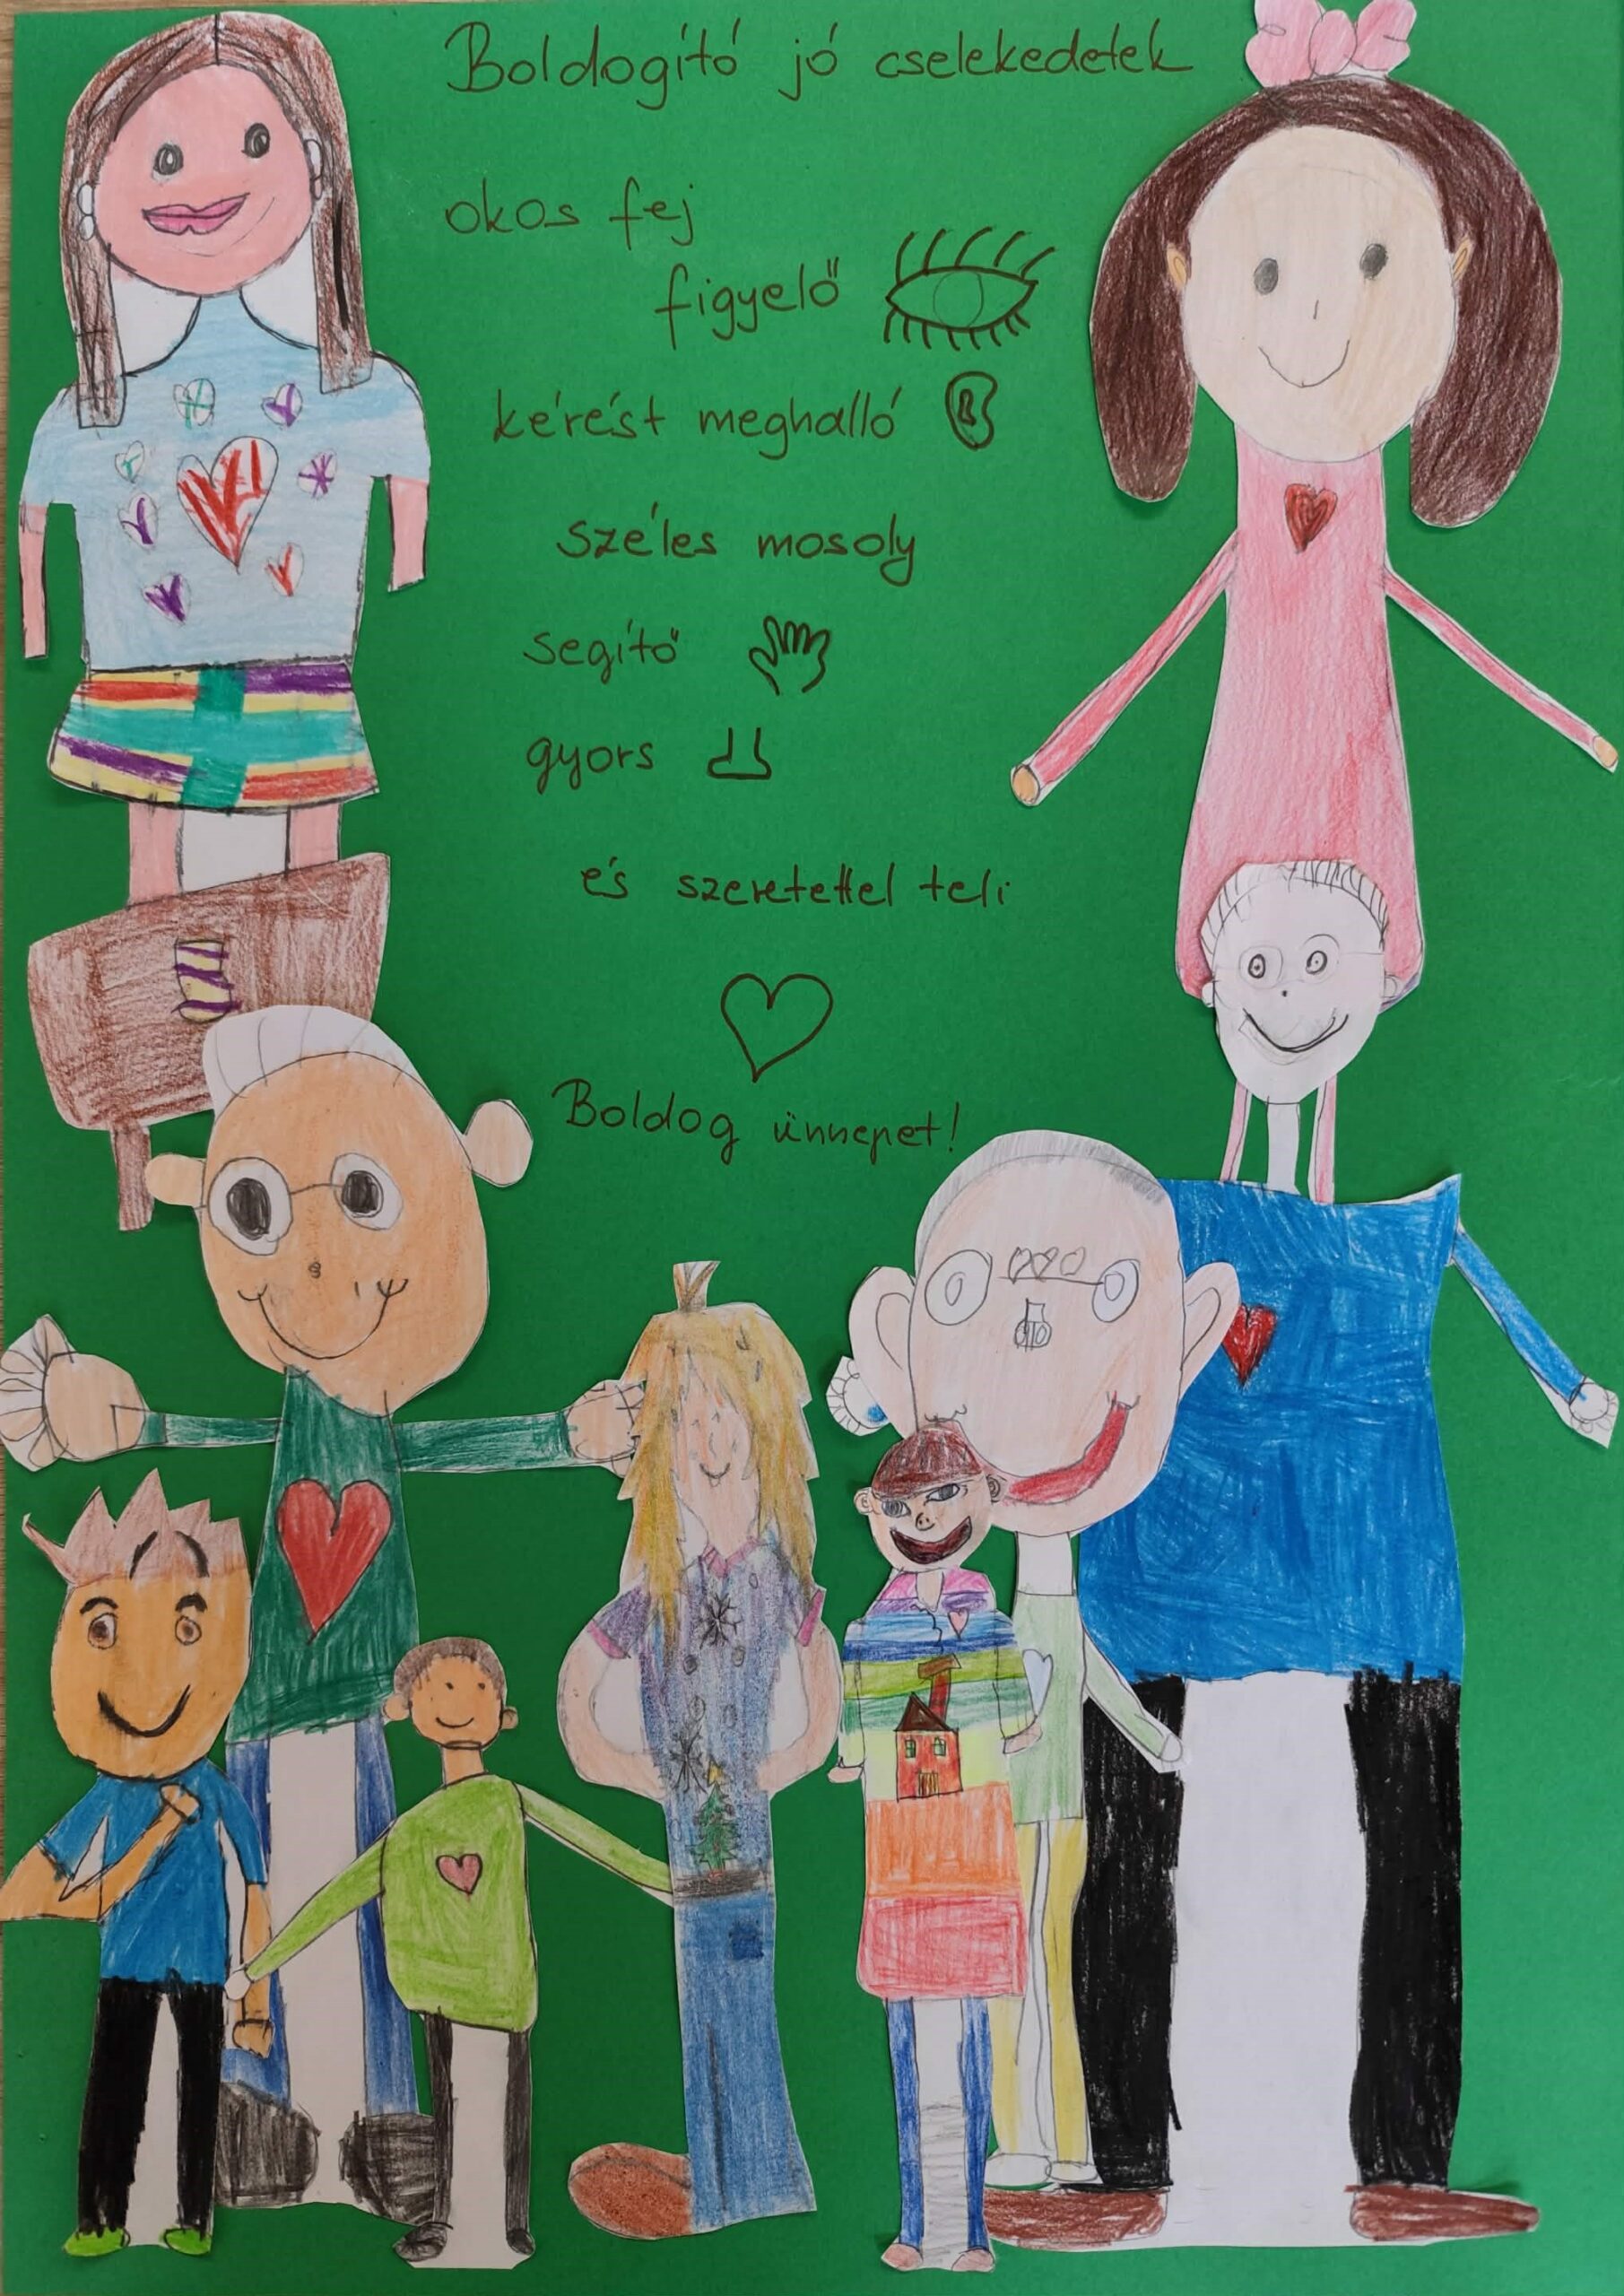 Boldogító jó cselekedetek
okos fej
figyelő
kérést meghalló
széles mosoly
segítő
gyors
és szeretettel teli
Boldog ünnepet!